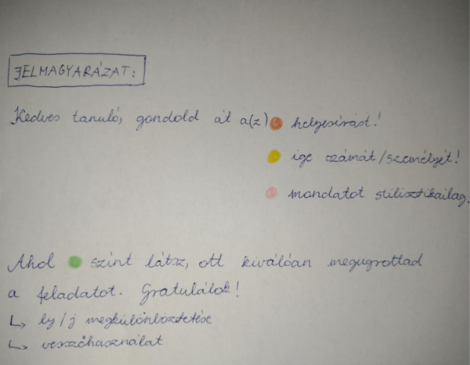 JELMAGYARÁZAT:
Kedves tanuló, gondold át a(z) helyesírást!
ige számát/személyét!
mondatot stilisztikailag.
Ahol színt látsz, ott kiválóan megugrottad
a feladatot. Gratulálok!
↳ ly/j megkülönböztetése
↳ vesszőhasználat